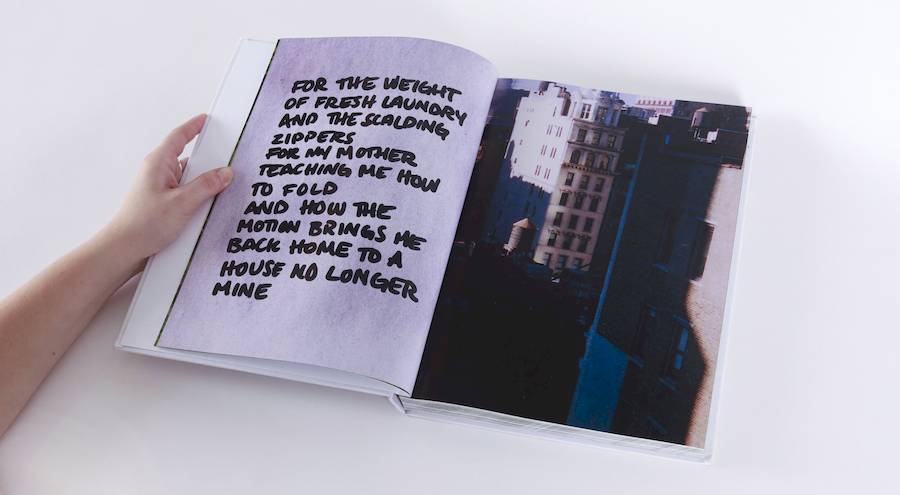 FOR THE WEIGHT
OF FRESH LAUNDRY
AND THE SCALDING
ZIPPERS
FOR MY MOTHER
TEACHING ME HOW
TO FOLD
AND HOW THE
MOTION BRINGS ME
BACK HOME TO A
HOUSE NO LONGER
MINE